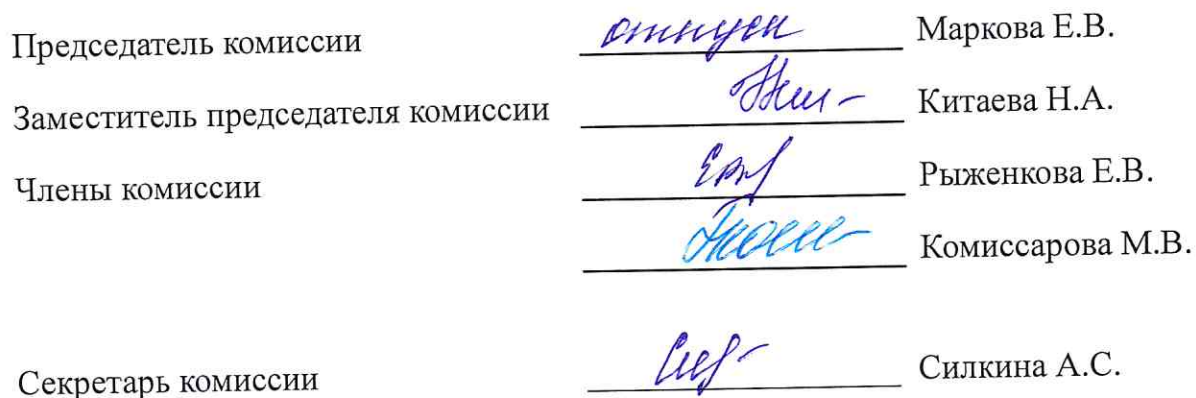 Председатель комиссии отпуск Маркова Е.В.
Заместитель председателя комиссии Китаева Н.А.
Члены комиссии Рыженкова Е.В.
Комиссарова М.В.
Секретарь комиссии Силкина А.С.